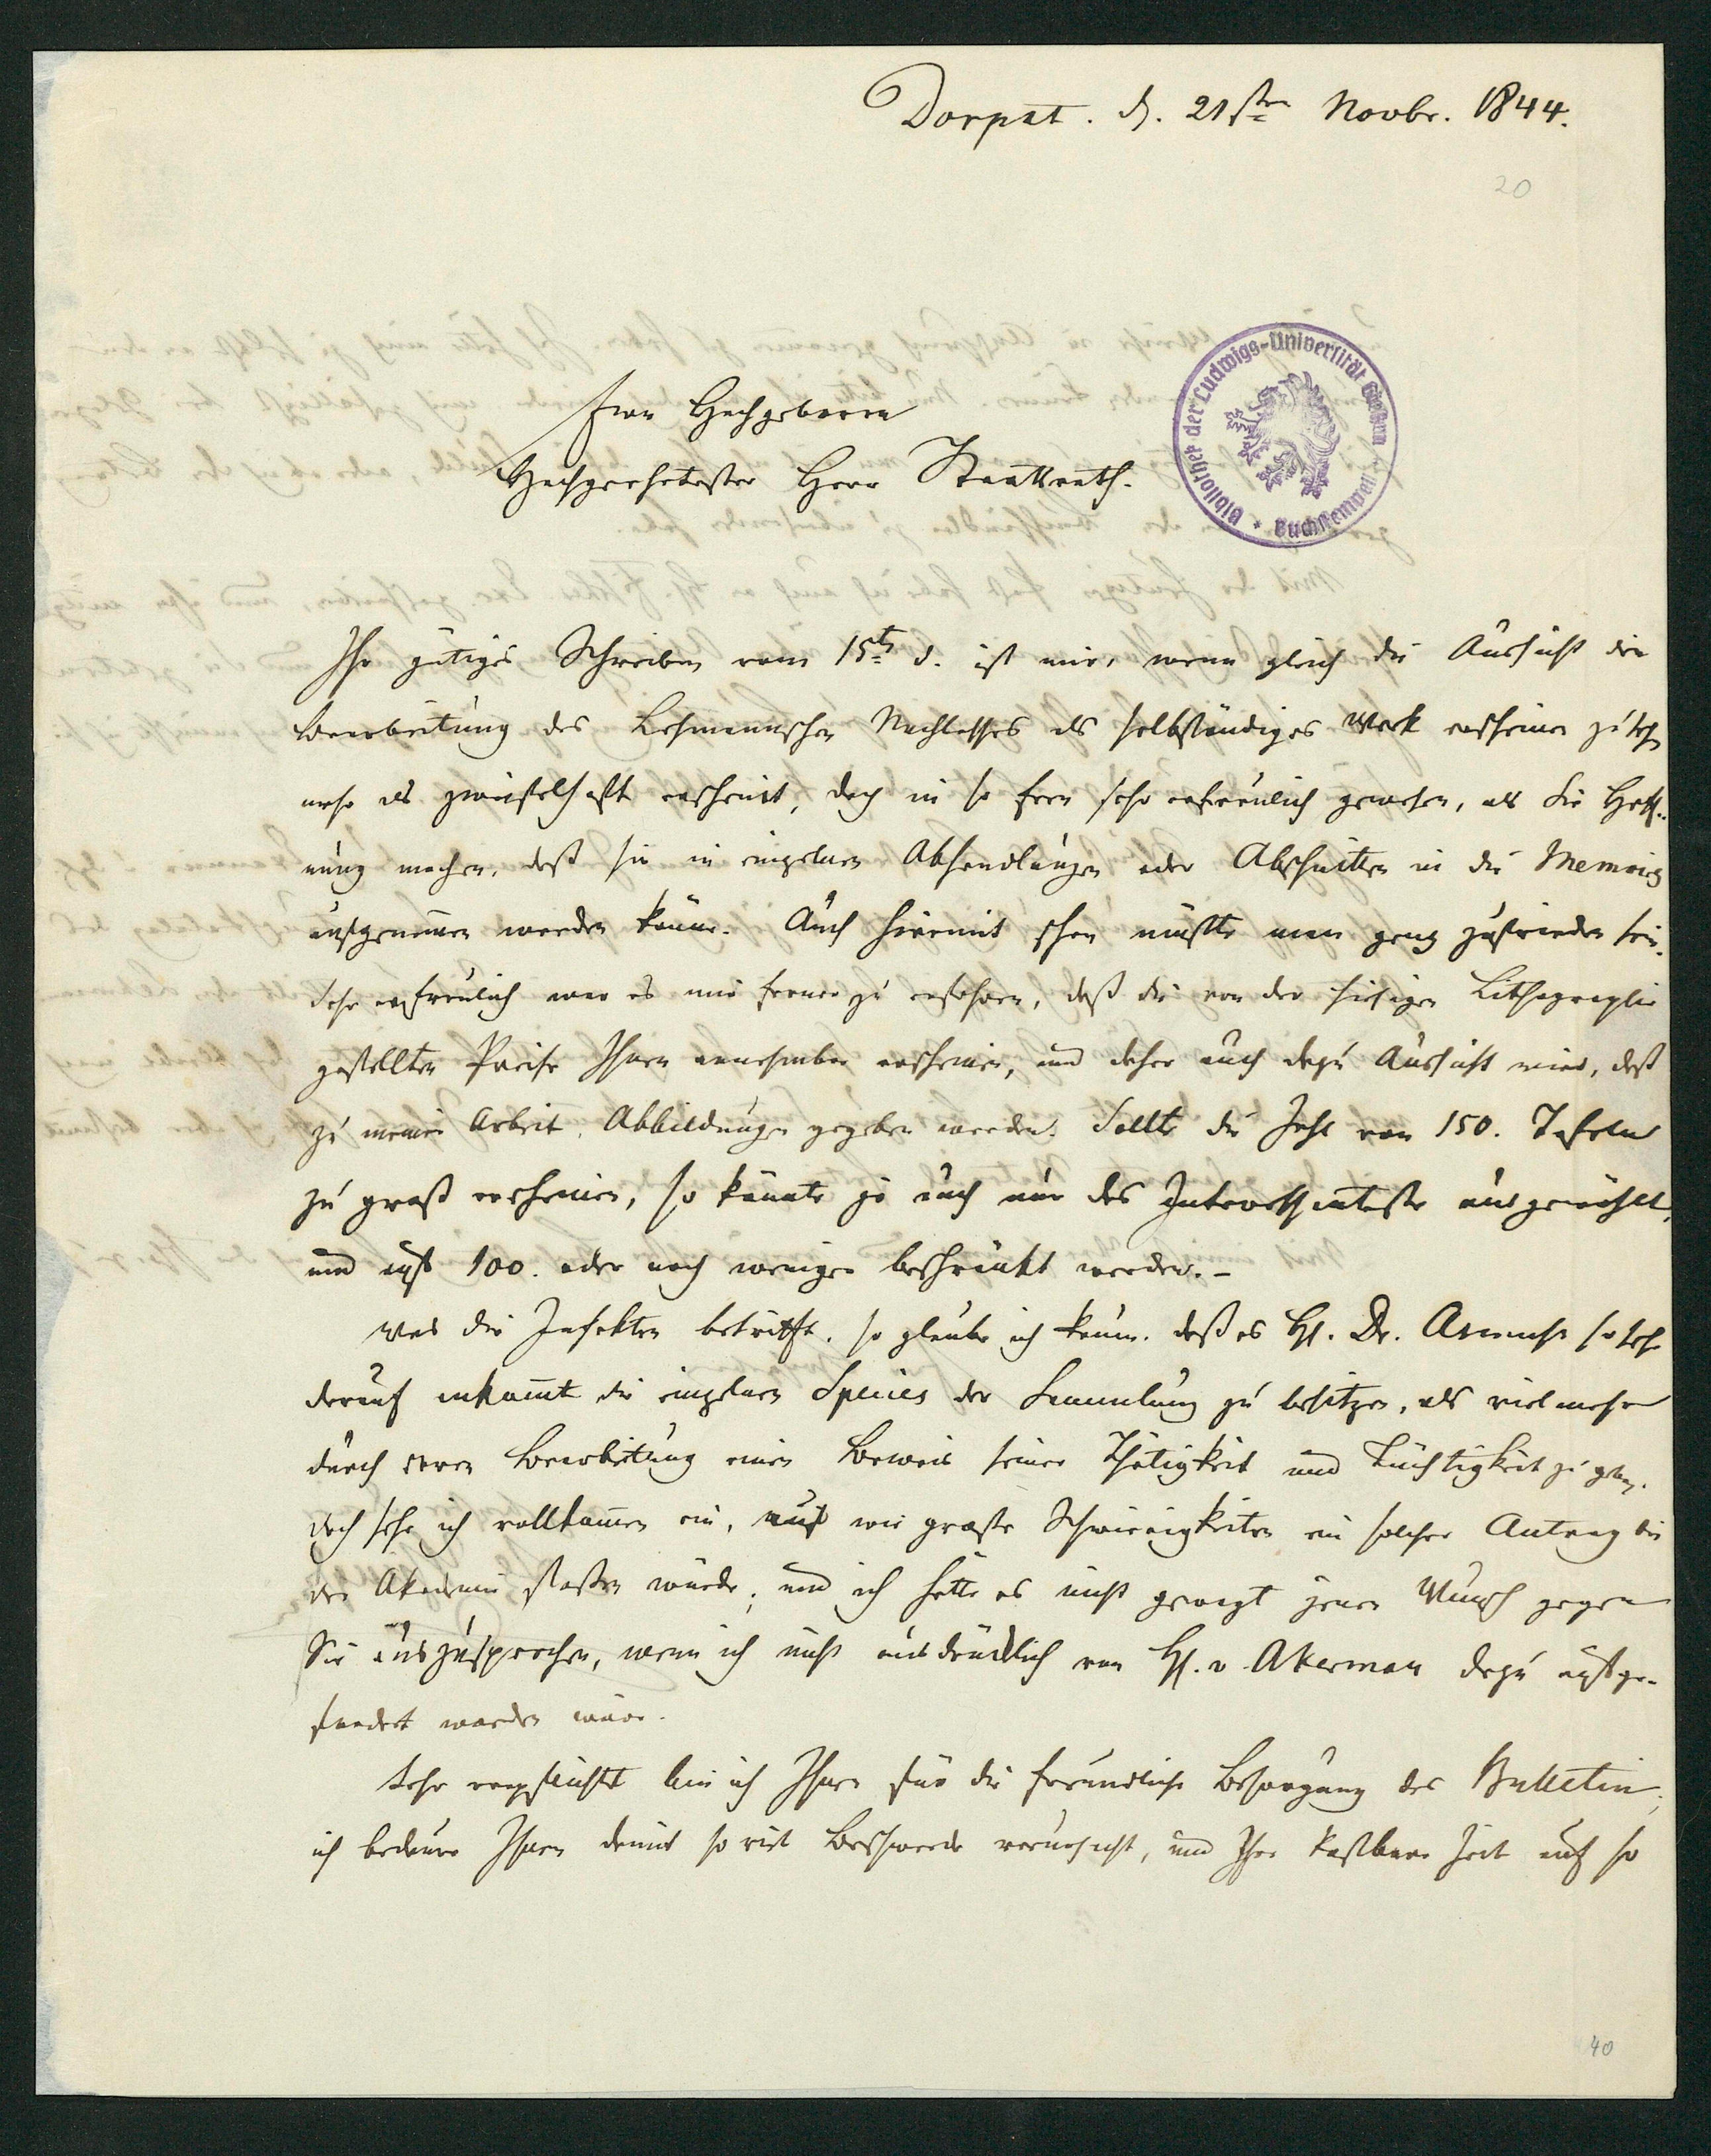 Dorpat. d. 21sten Novbr. 1844.
20
Euer Hochgeboren
Hochgeehrtester Herr Staatsrath.
Bibliothek der Ludwigs-Universität Gießen
Ihr gütiges Schreiben vom 15ten d. ist mir, wenn gleich die Aussicht die
Bearbeitung des Lehmannschen Nachlasses als selbständiges Werk erscheinen zu sehen
mehr als zweifelhaft erscheint, doch in so fern sehr erfreulich gewesen, als Sie Hoff-
nung machen, daß sie in einzelnen Abhandlungen oder Abschnitten in die Memoires
aufgenommen werden könne. Auch hiermit schon müßte man ganz zufrieden sein.
Sehr erfreulich war es mir ferner zu erfahren, daß die von der hiesigen Lithographie
gestellten Preise Ihnen annehmbar erscheinen, und daher auch dazu Aussicht wird, daß
zu meiner Arbeit, Abbildungen gegeben werden. Sollte die Zahl von 150. Tafeln
zu groß erscheinen, so könnte ja auch nur das Interessanteste ausgewählt,
und auf 100. oder noch weniger beschränkt werden. –
Was die Insekten betrifft, so glaube ich kaum, daß es H. Dr. Asmuss so sehr
darauf ankommt die einzelnen Species der Sammlung zu besitzen, als vielmehr
durch deren Bearbeitung einen Beweis seiner Thätigkeit und Tüchtigkeit zu geben.
doch sehe ich vollkommen ein, auf wie große Schwierigkeiten ein solcher Antrag bei
der Akademie stoßen würde; und ich hätte es nicht gewagt jenen Wunsch gegen
Sie auszusprechen, wenn ich nicht ausdrücklich von H. v. Akerman dazu aufge-
fordert worden wäre.
Sehr verpflichtet bin ich Ihnen für die freundliche Besorgung des Bulletin;
ich bedaure Ihnen damit so viel Beschwerde verursacht, und Ihre kostbare Zeit auf so
40